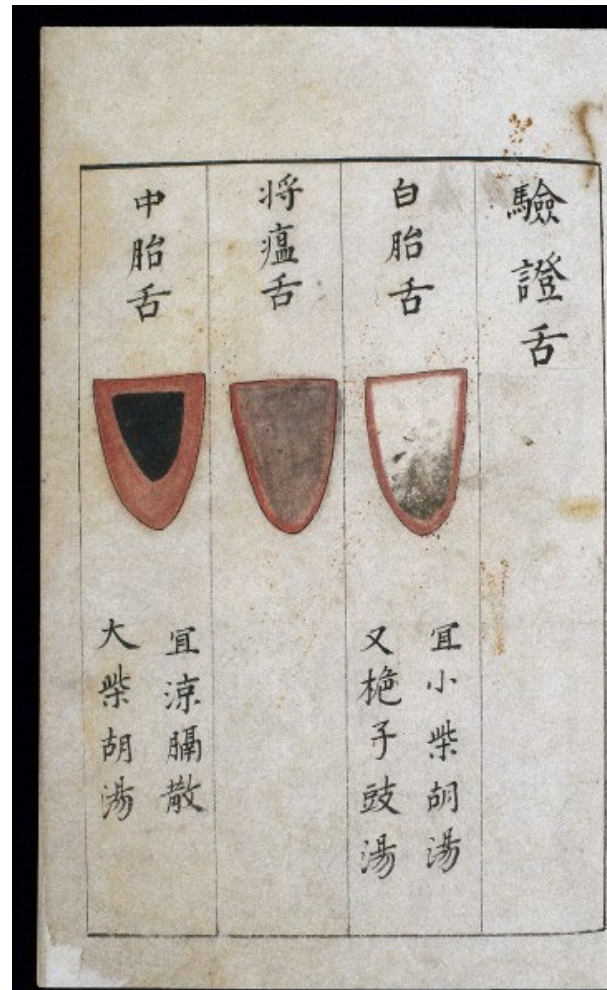 驗證舌
白胎舌
宜小柴胡湯
又栀子豉湯
将瘟舌
中胎舌
宜涼膈散
大柴胡湯